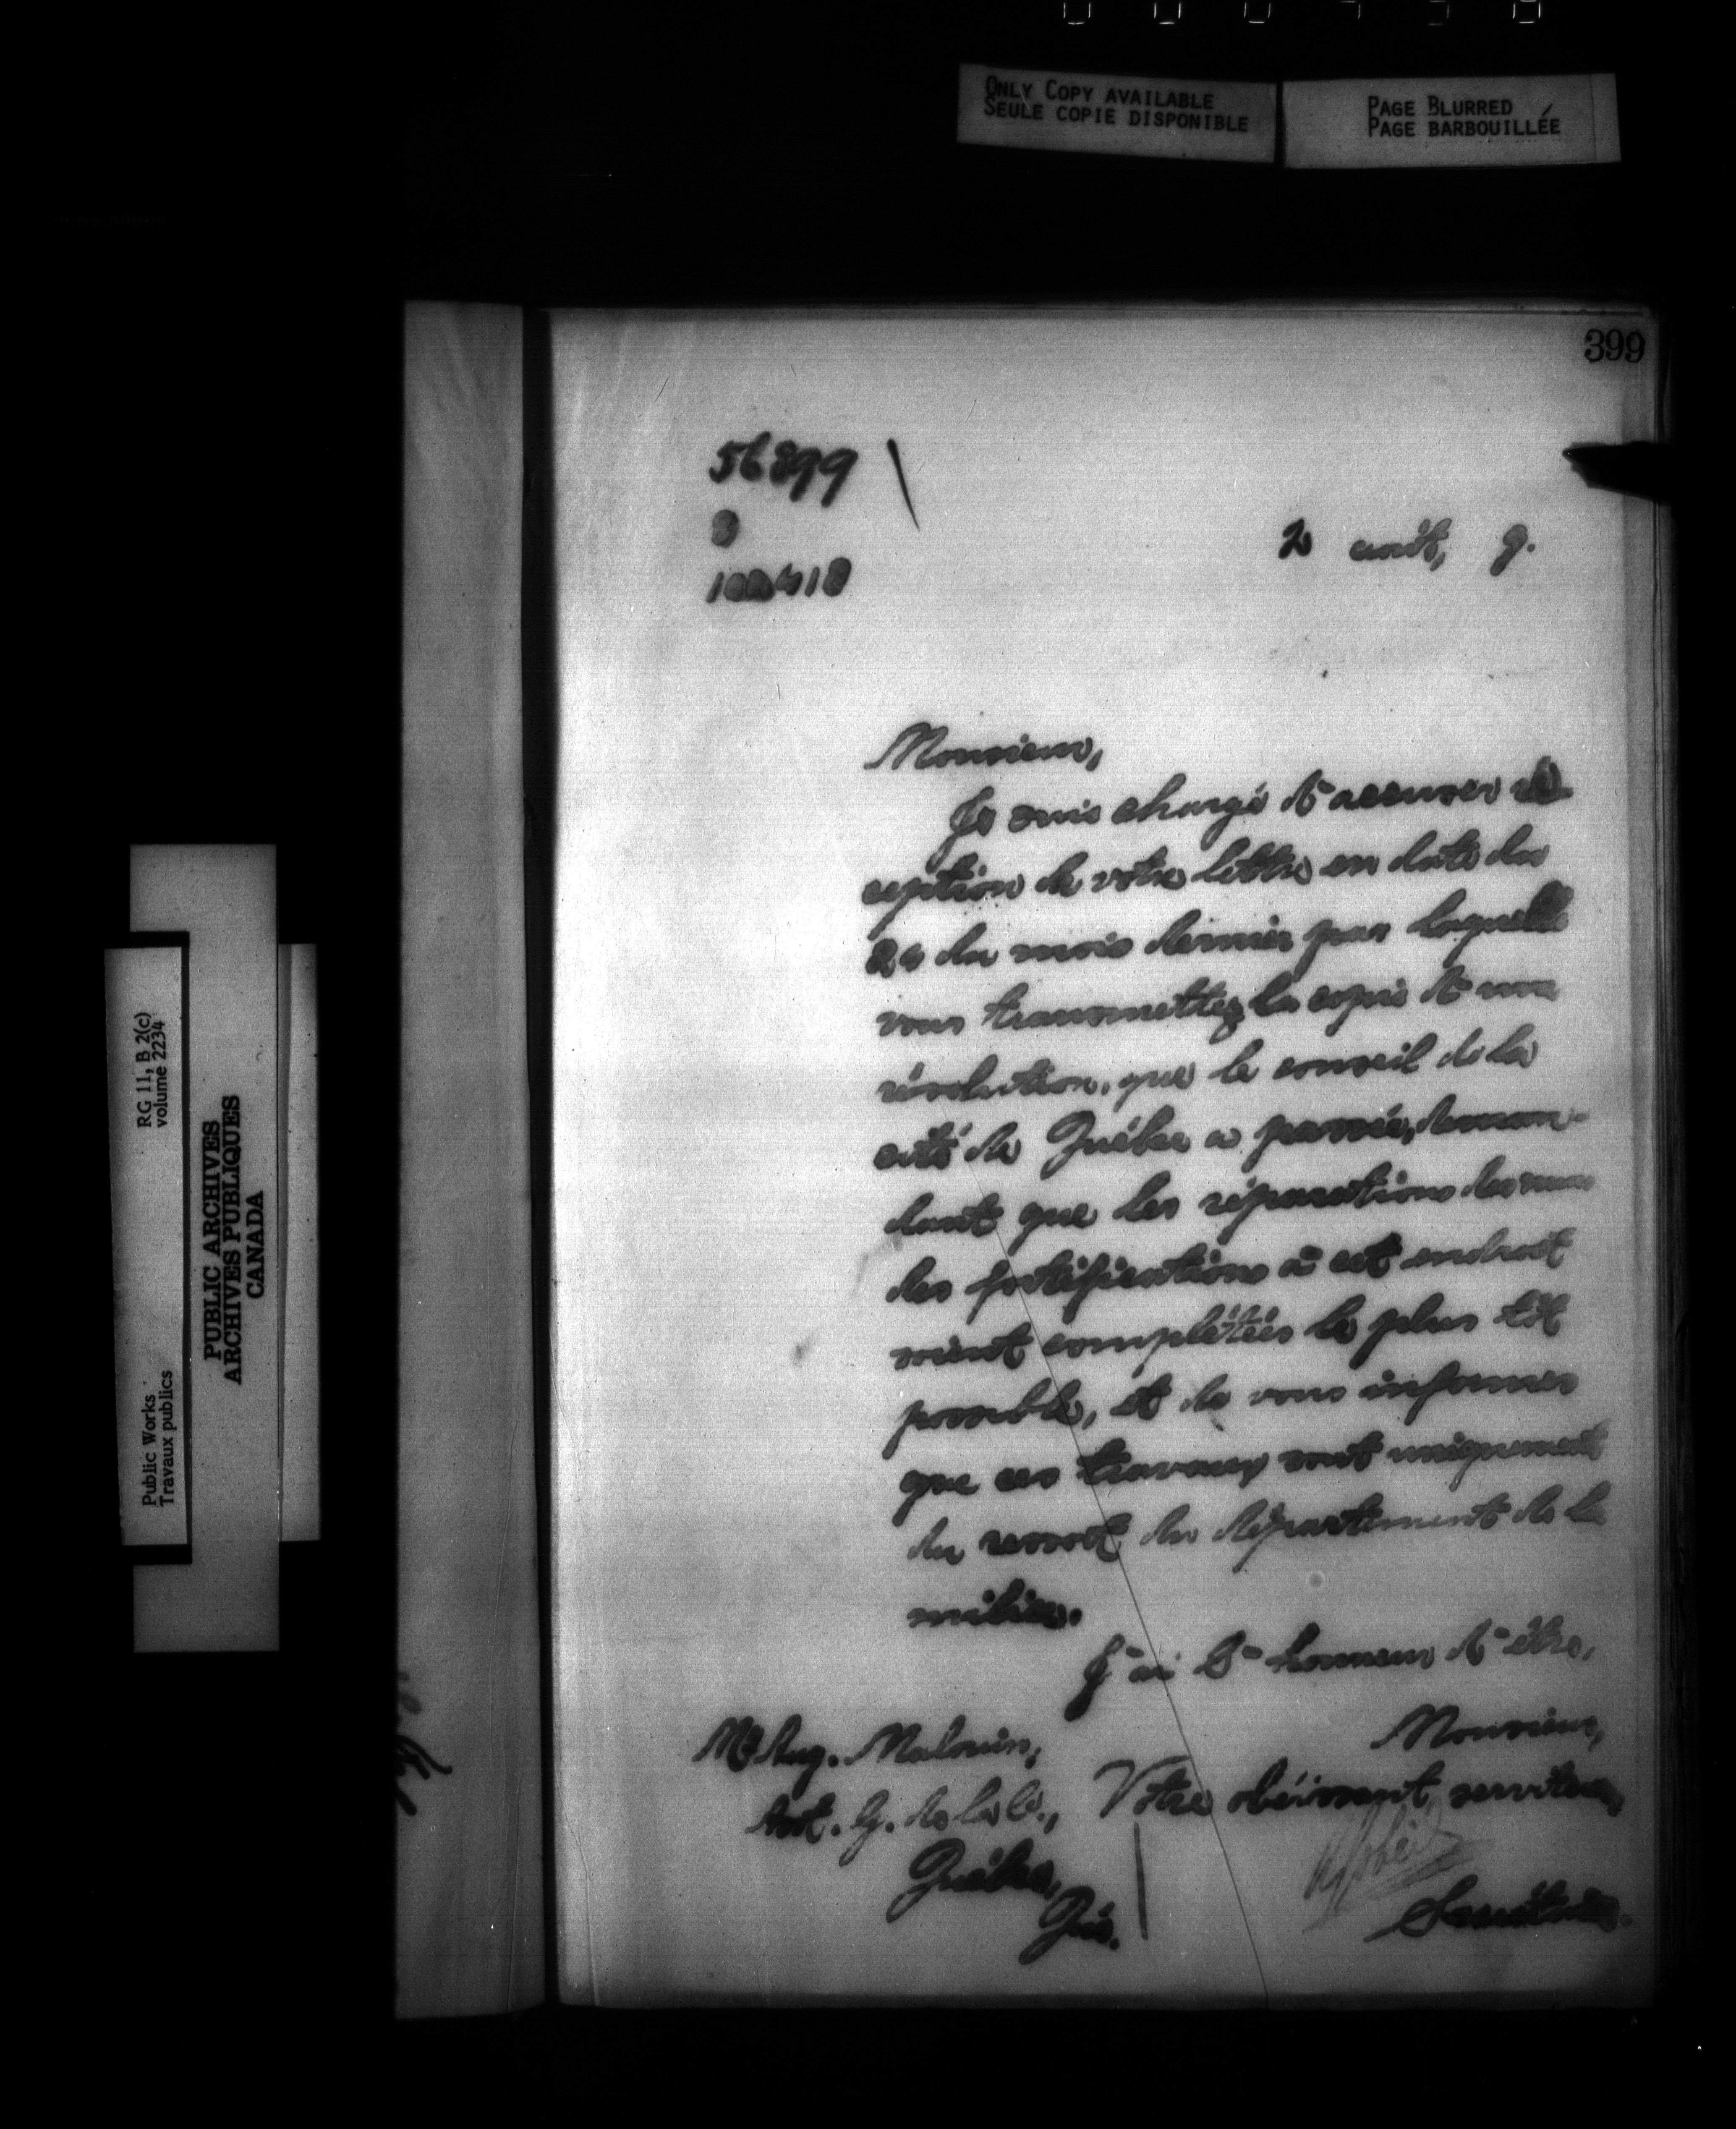 ONLY COPY AVAILABLE
SEULE COPIE DISPONIBLE
PAGE BLURRED
PAGE BARBOUILLÉE
399
56899
2 août, 9.
Monsieur,
Je suis chargé d'accuser ré-
ception de votre lettre en date du
du mois dernier par laquelle
vous transmettez la copie d'une
résolution, que le conseil de la
cité de Québec a passée, deman-
dant que les réparations des murs
des fortifications à cet endroit
soient complétées le plus tôt
possible, et de vous informer
que ces travaux sont uniquement
du ressort du département de la
milice.
J'ai l'honneur d'être,
Monsieur,
Votre obéissant serviteur,
Secrétaire.
Mr Aug. Malouin,
Asst. G. de la C.,
Québec,
Qué.
RG 11, B 2(c)
volume 2234
PUBLIC ARCHIVES
ARCHIVES PUBLIQUES
CANADA
Public Works
Travaux publics